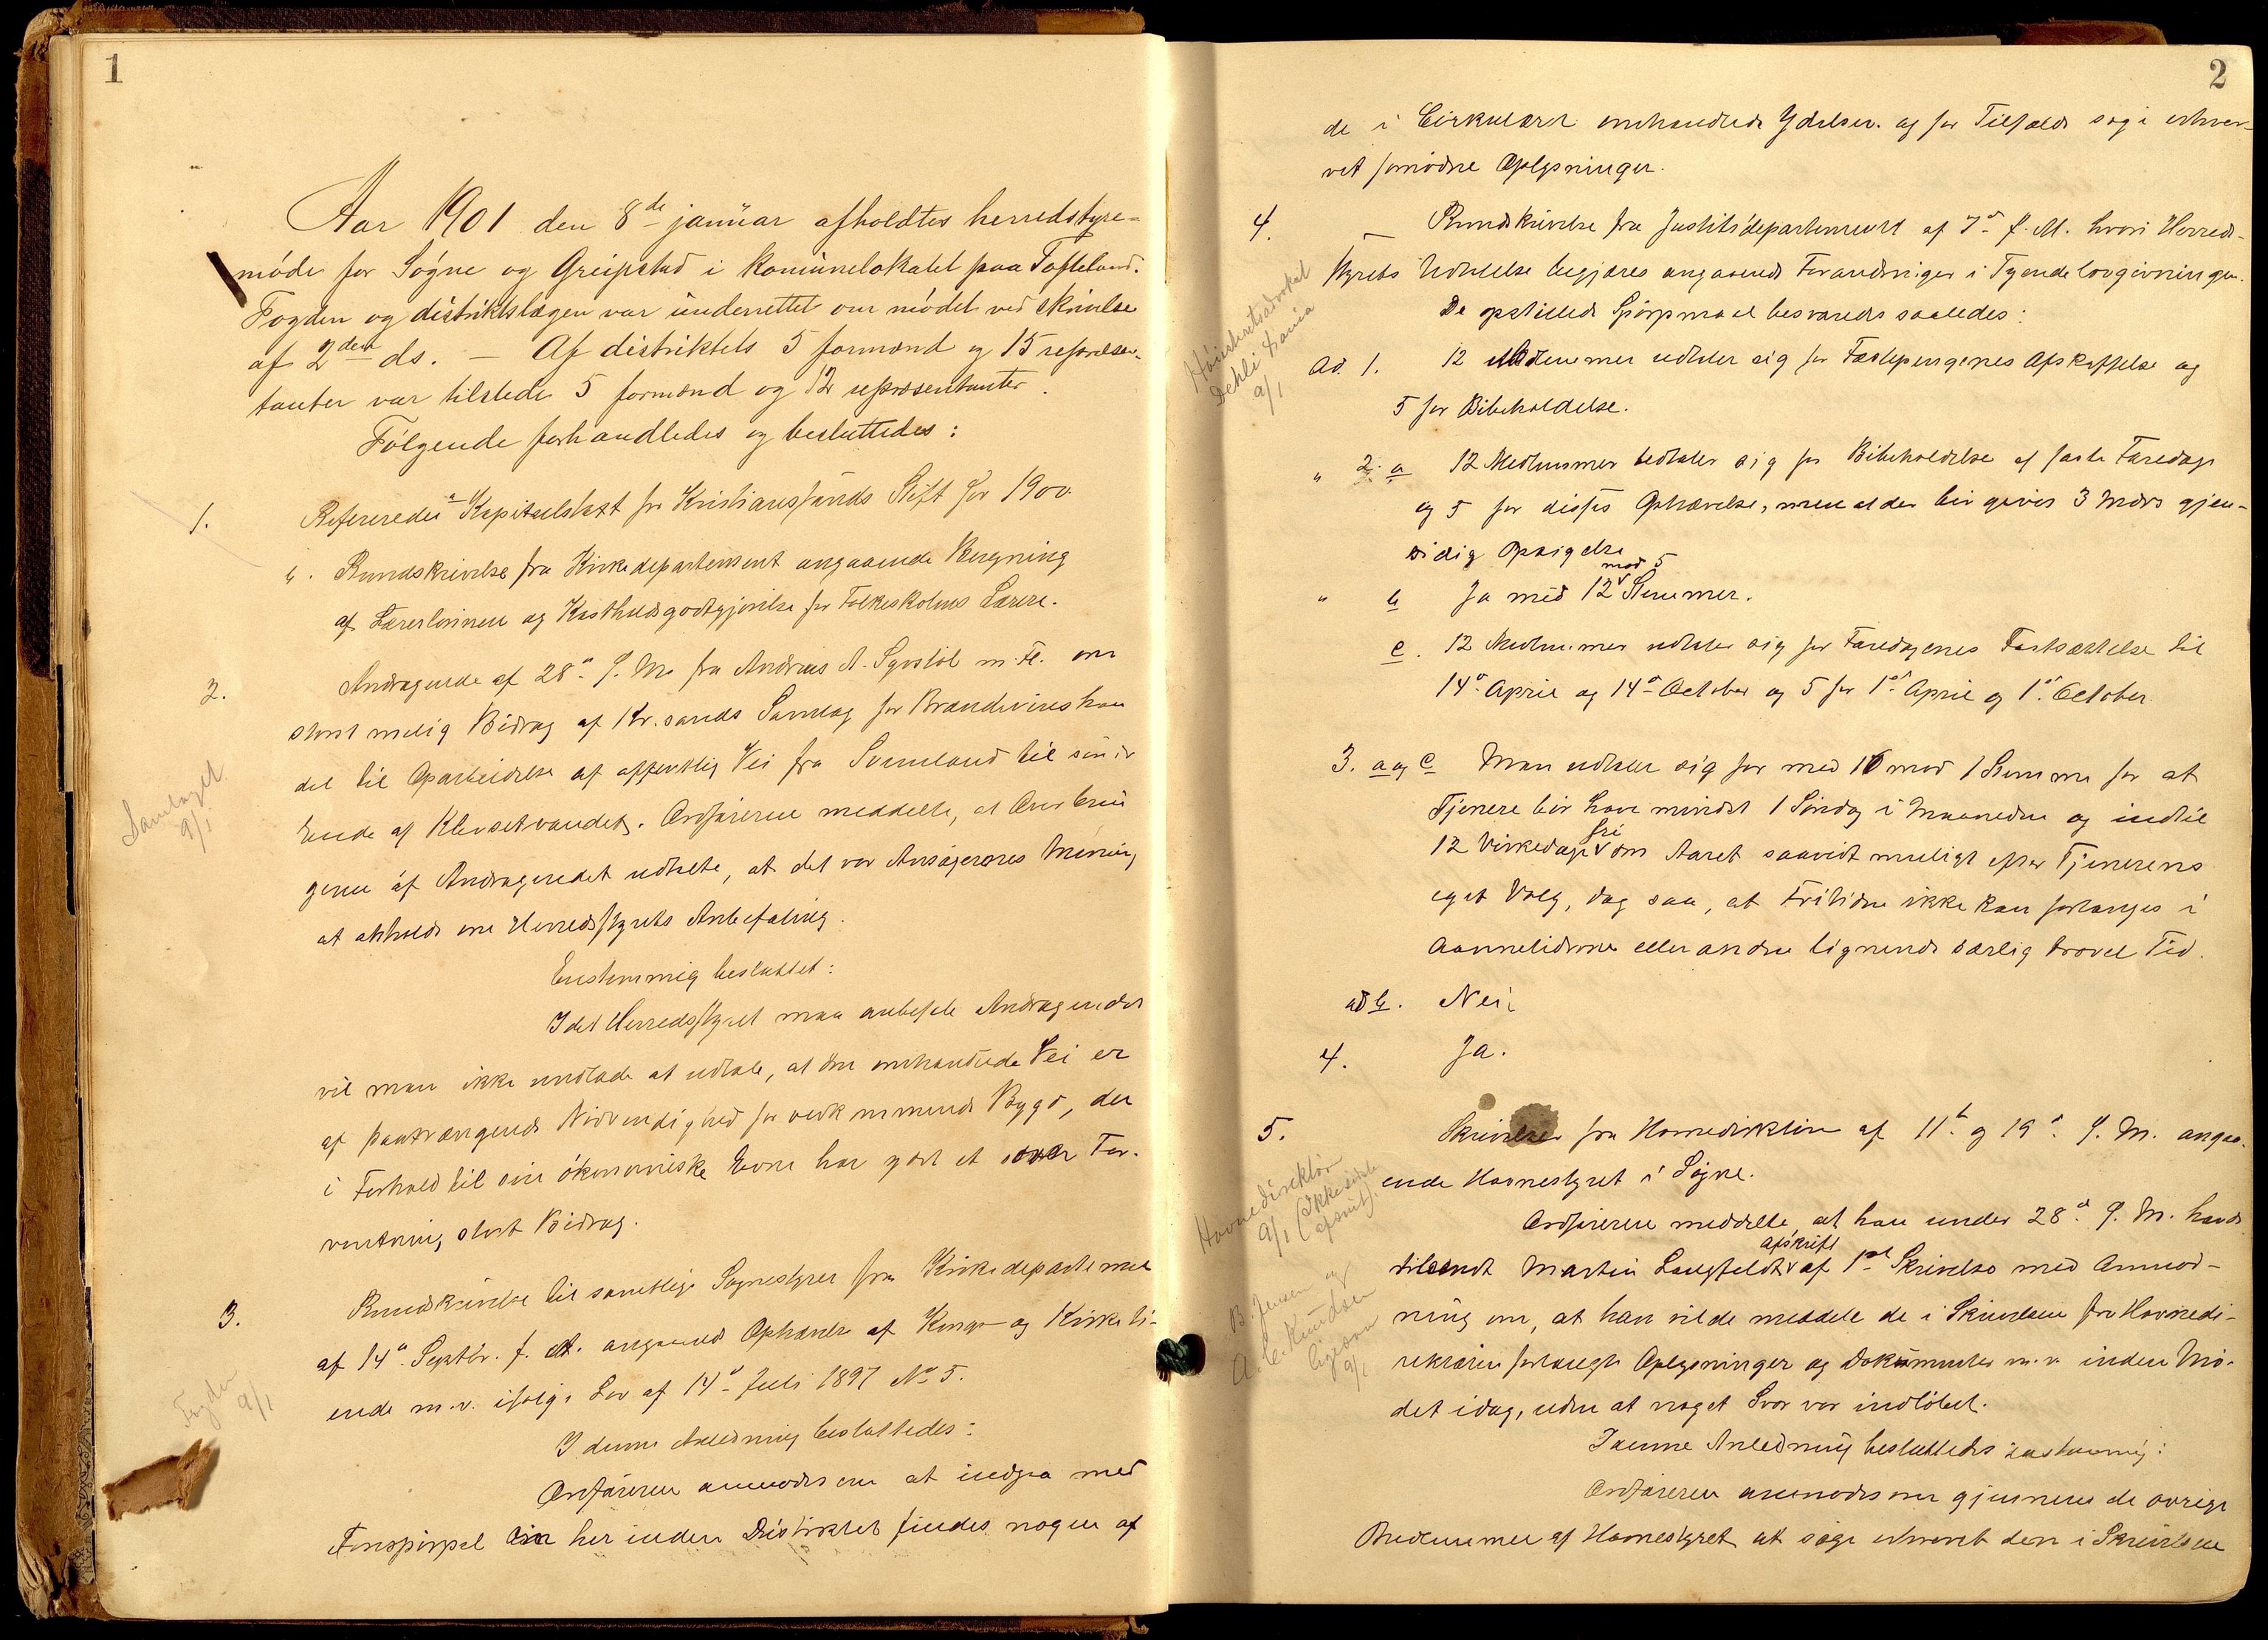 1
Aar 1901 den 8de januar afholdtes herredstyre-
möde for Sögne og Greipstad i komünelokalet paa Tofteland.
Fogden og distriktslægen var ünderrettet om mödet ved skrivelse
af 2den ds. — Af distriktets 5 formænd og 15 repræsen-
tanter var tilstede 5 formænd og 12 repræsentanter.
Fölgende forhandledes og besluttedes:
1. Refereredes a Kapitelstakst for Kristianssands Stift for 1900.
b. Rundskrivelse fra Kirkedepartement angaaende Beregning
af Lærerlönnen og Kostholdsgodtgjörelse for Folkeskolens Lærere.
2. Andragende af 28de f. M. fra Andreas A. Sgvstöl m. Fl. om
störst mulig Bidrag af Kr.sands Samlag for Brændevinshan
del til Oparbeidelse af offentlig Vei fra Sumeland til söndr
Ende af Klevsetvandet. Ordföreren meddelte, at Overbrin
geren af Andragendet udtalte, at det var Ansögernes Mening
at anholde om Herredsstyrets Anbefaling.
Enstemmig besluttet:
Idet Herredsstyret maa anbefale Andragendet
vil man ikke undlade at udtale, at den omhandlede Vei er
af paatrængende Nödvendighed for vedkommende Bygd, der
i Forhold til sin ökonomiske Evne har ydet et over For-
ventning stort Bidrag.
3. Rundskrivelse til samtlige Sognestyrer fra Kirkedepartemen
af 14de Septbr. f. A. angaaende Ophævelse af Konge- og Kirketi-
ende m.v. ifölge Lov af 14de Juli 1897 No 5.
I denne Anledning besluttedes:
Ordföreren anmodes om at indgaa med
Forespörgsel om her inden Distriktet findes nogen af
Samlaget
9/1
Fogden
9/1
2
de i Cirkulæret omhandlede Ydelser. og for Tilfælde söge erhver-
vet fornödne Oplysninger.
4. Rundskrivelse fra Justitsdepartementet af 7de f. M. hvori Herreds-
styrets Udtalelse begjæres angaaende Forandringer i Tyendelovgivningen.
De opstillede Spörgsmaal besvaredes saaledes:
Ad. 1. 12 Medlemmer udtaler sig for Fæstepengenes Afskaffelse og
5 for Bibeholdelse.
" 2. a 12 Medlemmer udtaler sig for Bibeholdelse af faste Faredage
og 5 for disses Ophævelse, men at der bör gives 3 Mdrs gjen-
sidig Opsigelse
" b Ja med 12 mod 5 Stemmer.
c. 12 Medlemmer udtaler sig for Faredagenes Fastsættelse til
14de April og 14de October og 5 for 1ste April og 1ste October.
3. a og c Man udtaler sig for med 16 mod 1 Stemme for at
Tjenere bör have mindst 1 Söndag i Maaneden og indtil
12 Virkedage fri om Aaret saavidt muligt efter Tjenerens
eget Valg, dog saa, at Fritiden ikke kan forlanges i
Aannetiderne eller anden lignende særlig travel Tid.
ad b. Nei.
4. Ja.
5. Skrivelser fra Havnedirektören af 11te og 19de f. M. angaa-
ende Havnestyret i Sögne.
Ordföreren meddelte, at han under 28de f. M. havde
tilsendt Martin Langfeldt Afskrift af 1ste Skrivelse med Anmod-
ning om, at han vilde meddele de i Skrivelsen fra Havnedi-
rektören forlangte Oplysninger og Dokumenter m.v. inden Mö-
det idag, uden at noget Svar var indlöbet.
I denne Anledning besluttedes enstemmig:
Ordföreren anmodes om gjennem de övrige
Medlemmer af Havnestyret at söge erhvervet den i Skrivelsen
Höiesteretsadvokat
Dehli Xania
9/1
Havnedirektör
9/1 (Ikke sidste
afsnit).
B. Jensen og
A. C. Knudsen
9/1